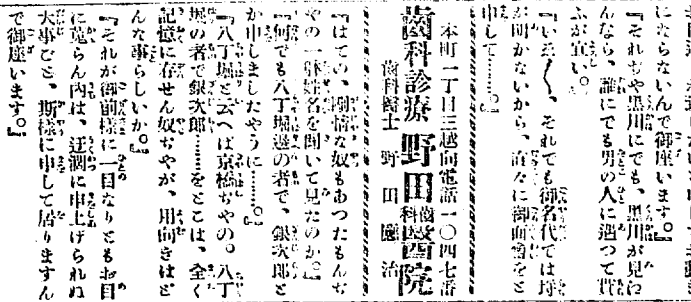 にならないんで御座います。』
『それぢや黒川にでも、黒川が見わ
んなら、誰にでも男の人に遇つて貰
ふが宜い。』
『いえ〱、それでも御名代では埒
が明かないから、直々に御面會をと
申して……。』
本町一丁目三越向電話一〇四七番
歯科診療 野田歯科醫院
歯科醫士 野田 治
『はてい、剛情な奴もあつたもんぢ
やの一躰姓名を聞いて見たのか。』
『何でも八丁堀邊の者で、銀次郎と
か申しましたやうに……。』
『八丁堀と云へば京橋ぢやの。八丁
堀の者で銀次郎……をとこは、全く
記憶に存せん奴ぢやが、用向きはど
んな事らしいか。』
『それが御前様に一目なりともお目
に懸らん内は、迂濶に申上げられぬ
大事ぢと、斯様に申して居りますん
で御座います。』